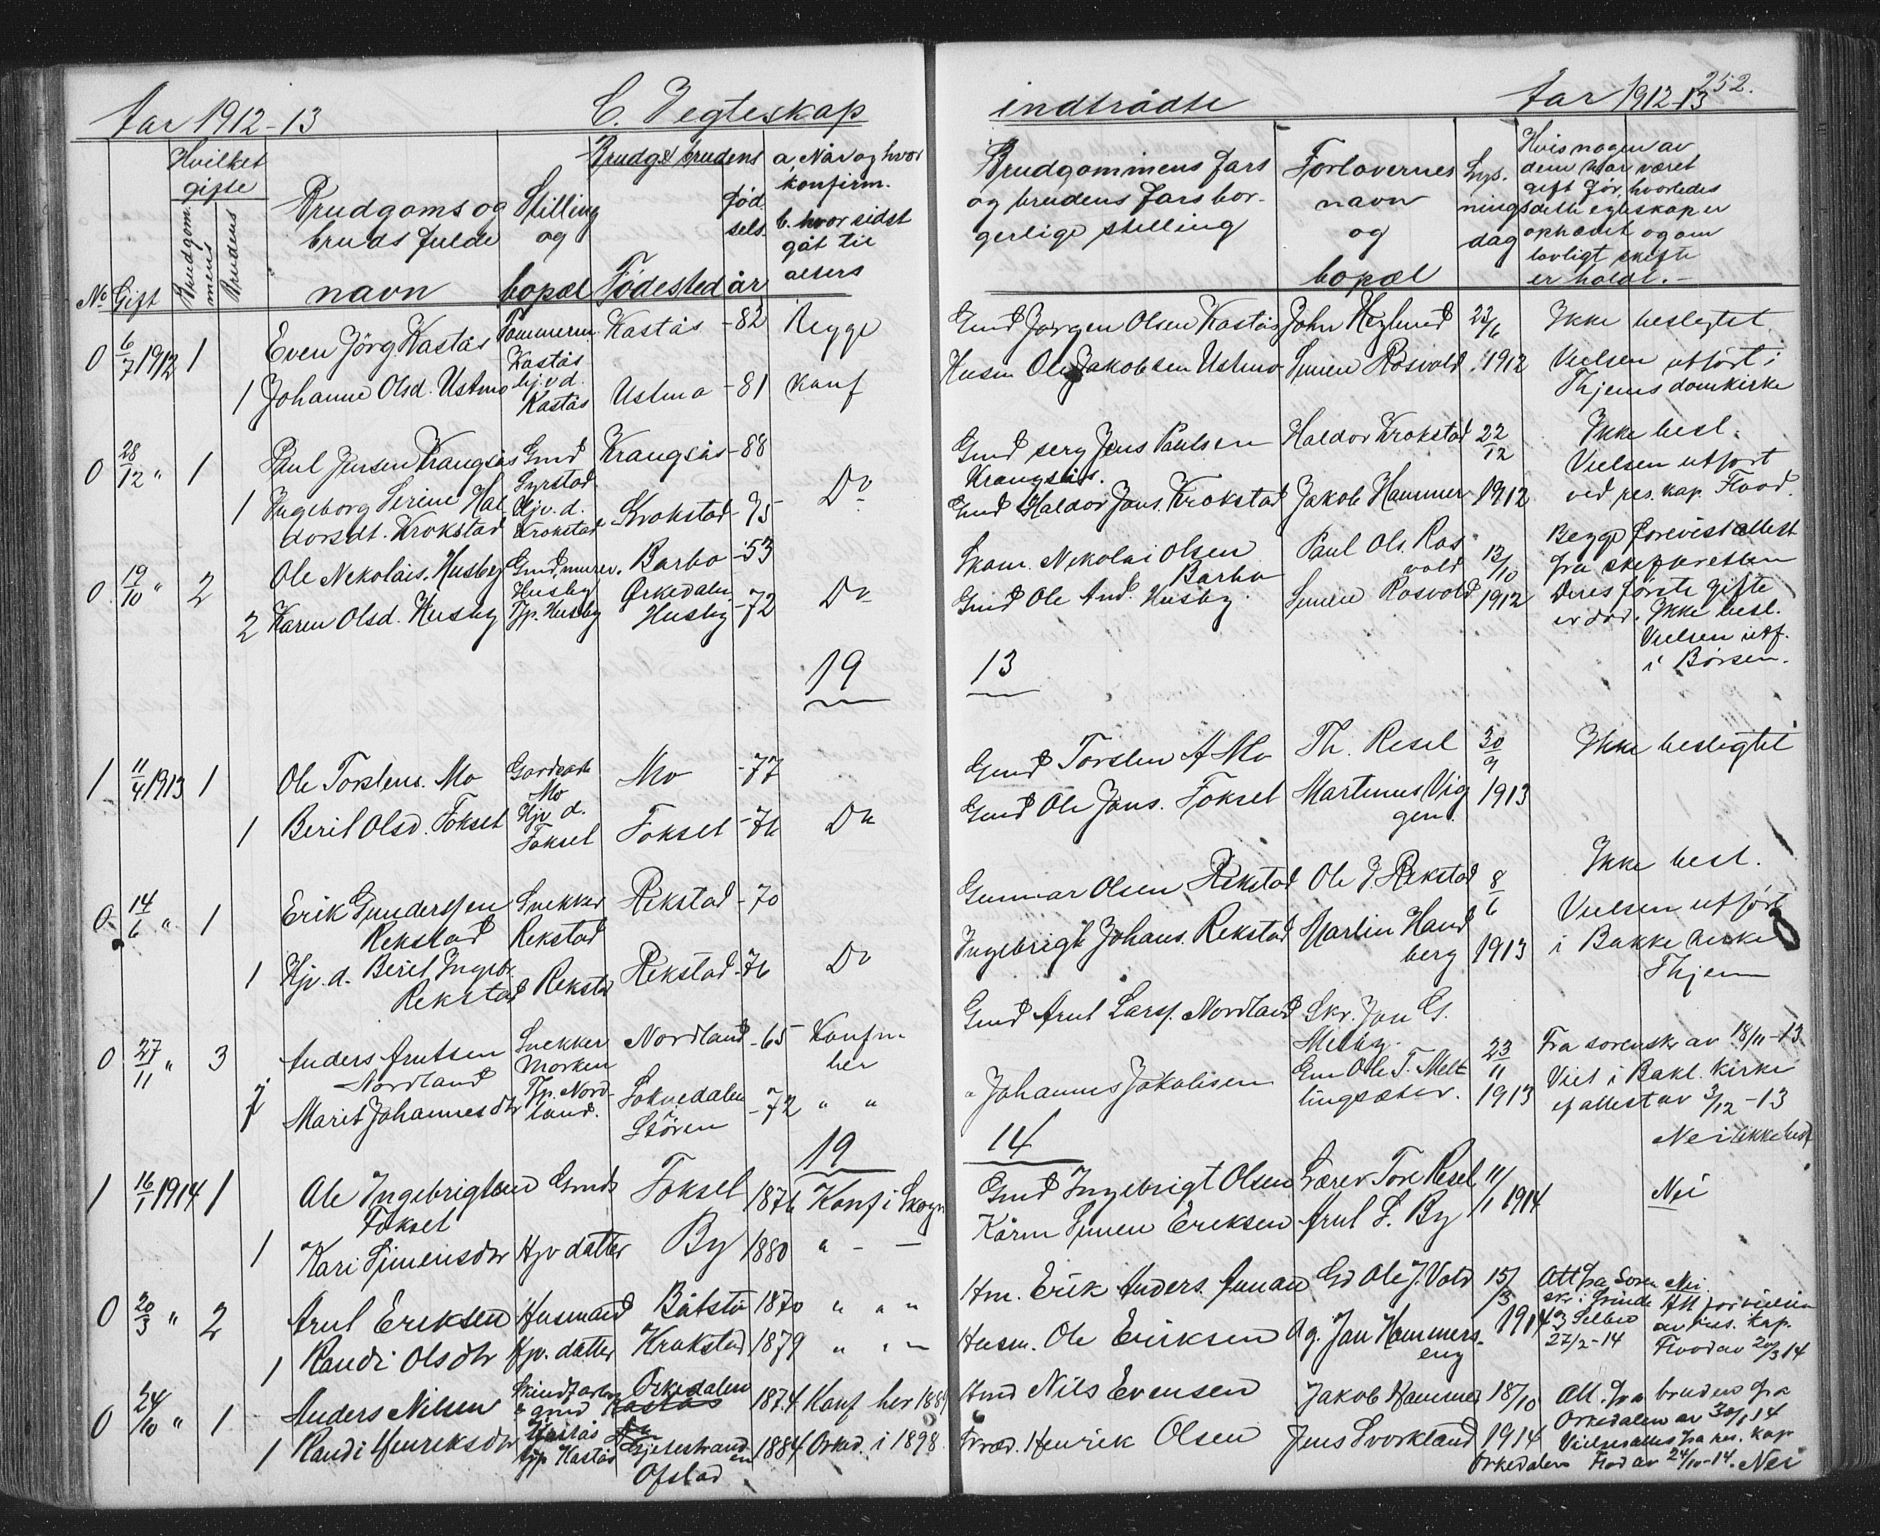 Aar 1912-13
C. Ægteskap
Hvilket
gifte
Brudg & brudens
a, Når og hvor
konfirm.
b. hvor sidst
gåt til
alters
No
Gift
Brudgom.
mens
Brudens
Brudgoms og
bruds fulde
navn
Stilling
og
bopæl
Fødested
fød
sels
år
0 6/7 1912 1 Even Jörg Kastås Tømmerm. Kastås -82 Begge
Kastås
1 Johanne Olsd. Ustmo hj.v.d. Ustmo -81 konf
Kastås
0 28/12 " 1 Paul Jensen Krangsås Gmd Krangsås -88
Syrstad
1 Ingeborg Serine Hal Hjv. d. Krokstad -95 Do
dorsdt. Krokstad Krokstad
0 19/10 " 2 Ole Nekolais. Husby Gmd, murer. Barbo -53
Husby Orkedalen
2 Karen Olsd. Husby Tjp. Husby Husby -72 Do
19
1 11/4 1913 1 Ole Torstens. Mo Gardsarb Mo -77
Mo
1 Beril Olsd. Foksel Hjv d. Foksel -76 Do
Foksel
0 14/6 " 1 Erik Gunderssen Snekker Rekstad -70
Rekstad Rekstad
1 Hjv. d. Beret Ingebr. Rekstad -76 Do
Rekstad Rekstad
0 27/11 " 3 Anders Arntsen Snekker Nordland -65 Konfm
Nordland Morken her
Marit Johannesdtr Tjp. Nord Soknedalen -72 " "
land. Stören
19
1 16/1 1914 1 Ole Ingebrigtsen Gmds Foksel 1876 Konf i Skogn
Foksel
1 Kari Simensdtr Hjv datter By 1880 " - -
0 20/3 " 2 Arnt Eriksen Husmand Båtstø 1870 " " "
1 Randi Olsdtr hjv. datter Krokstad 1879 " " "
0 24/10 " 1 Anders Nilsen Orkedalen 1874 Konf her 1889
& gmd Kastås
1 Randi Henriksdtr Kastås
tjp Kastås Gjeitestrand 1884 Orked. i 1898
en
Ofstad
indtrådte
Aar 1912-13
252.
Brudgommens fars
og brudens fars bor-
gerlige stilling
Forlovernes
navn
og
bopæl
Lys.
nings
dag
Hvis nogen av
dem har været
gift før, hvorledes
dette egteskap er
ophævet og om
lovligt skifte
er holdt.-
Gmd Jørgen Olsen Kastås John Heglund 23/6 Ikke beslegtet
Husm Ole Jakobsen Ustmo Simen Rosvold 1912 Vielsen utført i
Thjems domkirke
Gmd serg Jens Paulsen Haldor Krokstad 22/12 Ikke besl.
Krangsås. Vielsen utført
Gmd Haldor Jons. Krokstad Jakob Hammer 1912 ved res. kap. Flood.
Skom. Nekolai Olsen Paul Ols. Ros 13/10 Begge forevist attest
Barbo vold fra skifteretten
Gmd Ole And. Husby. Simen Rosvold 1912 Deres første gifte
er död. Ikke besl.
Vielsen utf.
i Børsen.
13
Gmd Torsten A Mo Th. Resel 30/9 Ikke beslegtet
Gmd Ole Jons. Foksel Martinus Vig 1913
gen.
Gunnar Olsen Rekstad Ole J. Rekstad 8/6 Ikke besl.
Vielsen utført
Ingebrigt Johans. Rekstad Martin Hand 1913 i Bakke kirke
berg Thjem
Gmd Arnt Larss. Nordland Skr. Jon G.
Melby. 23/11 Fra sorenskr av 18/11-13
" Johannes Jakobsen Em Ole T. Melt 1913 Viet i Bakl. kirke
lingsæter. ef attest av 3/12-13
Nei ikke besl
14
Gmd Ingebrigt Olsen Lærer Tore Resel 11/1 1914 Nei
Kårm Simen Eriksen Arnt L. By
Hm. Erik Anders. Gd Ole J. Vold 15/3 Att fra Soren Nei
skr i Strinde Att for vielsen
Husm. Ole Eriksen Og. Jon Hammers. 1914 og Selbu av res. kap.
eng 27/2-14 Flood av 20/3 14
Gmd Nils Evensen Jakob Hammer 18/10 Att. fra brudens fra
Orkedalen av 30/1 14
Henrik Olsen Jens Svorkland 1914 Vielsesattes fra res. kap
Orkedalen Flod av 24/10-14. Nei